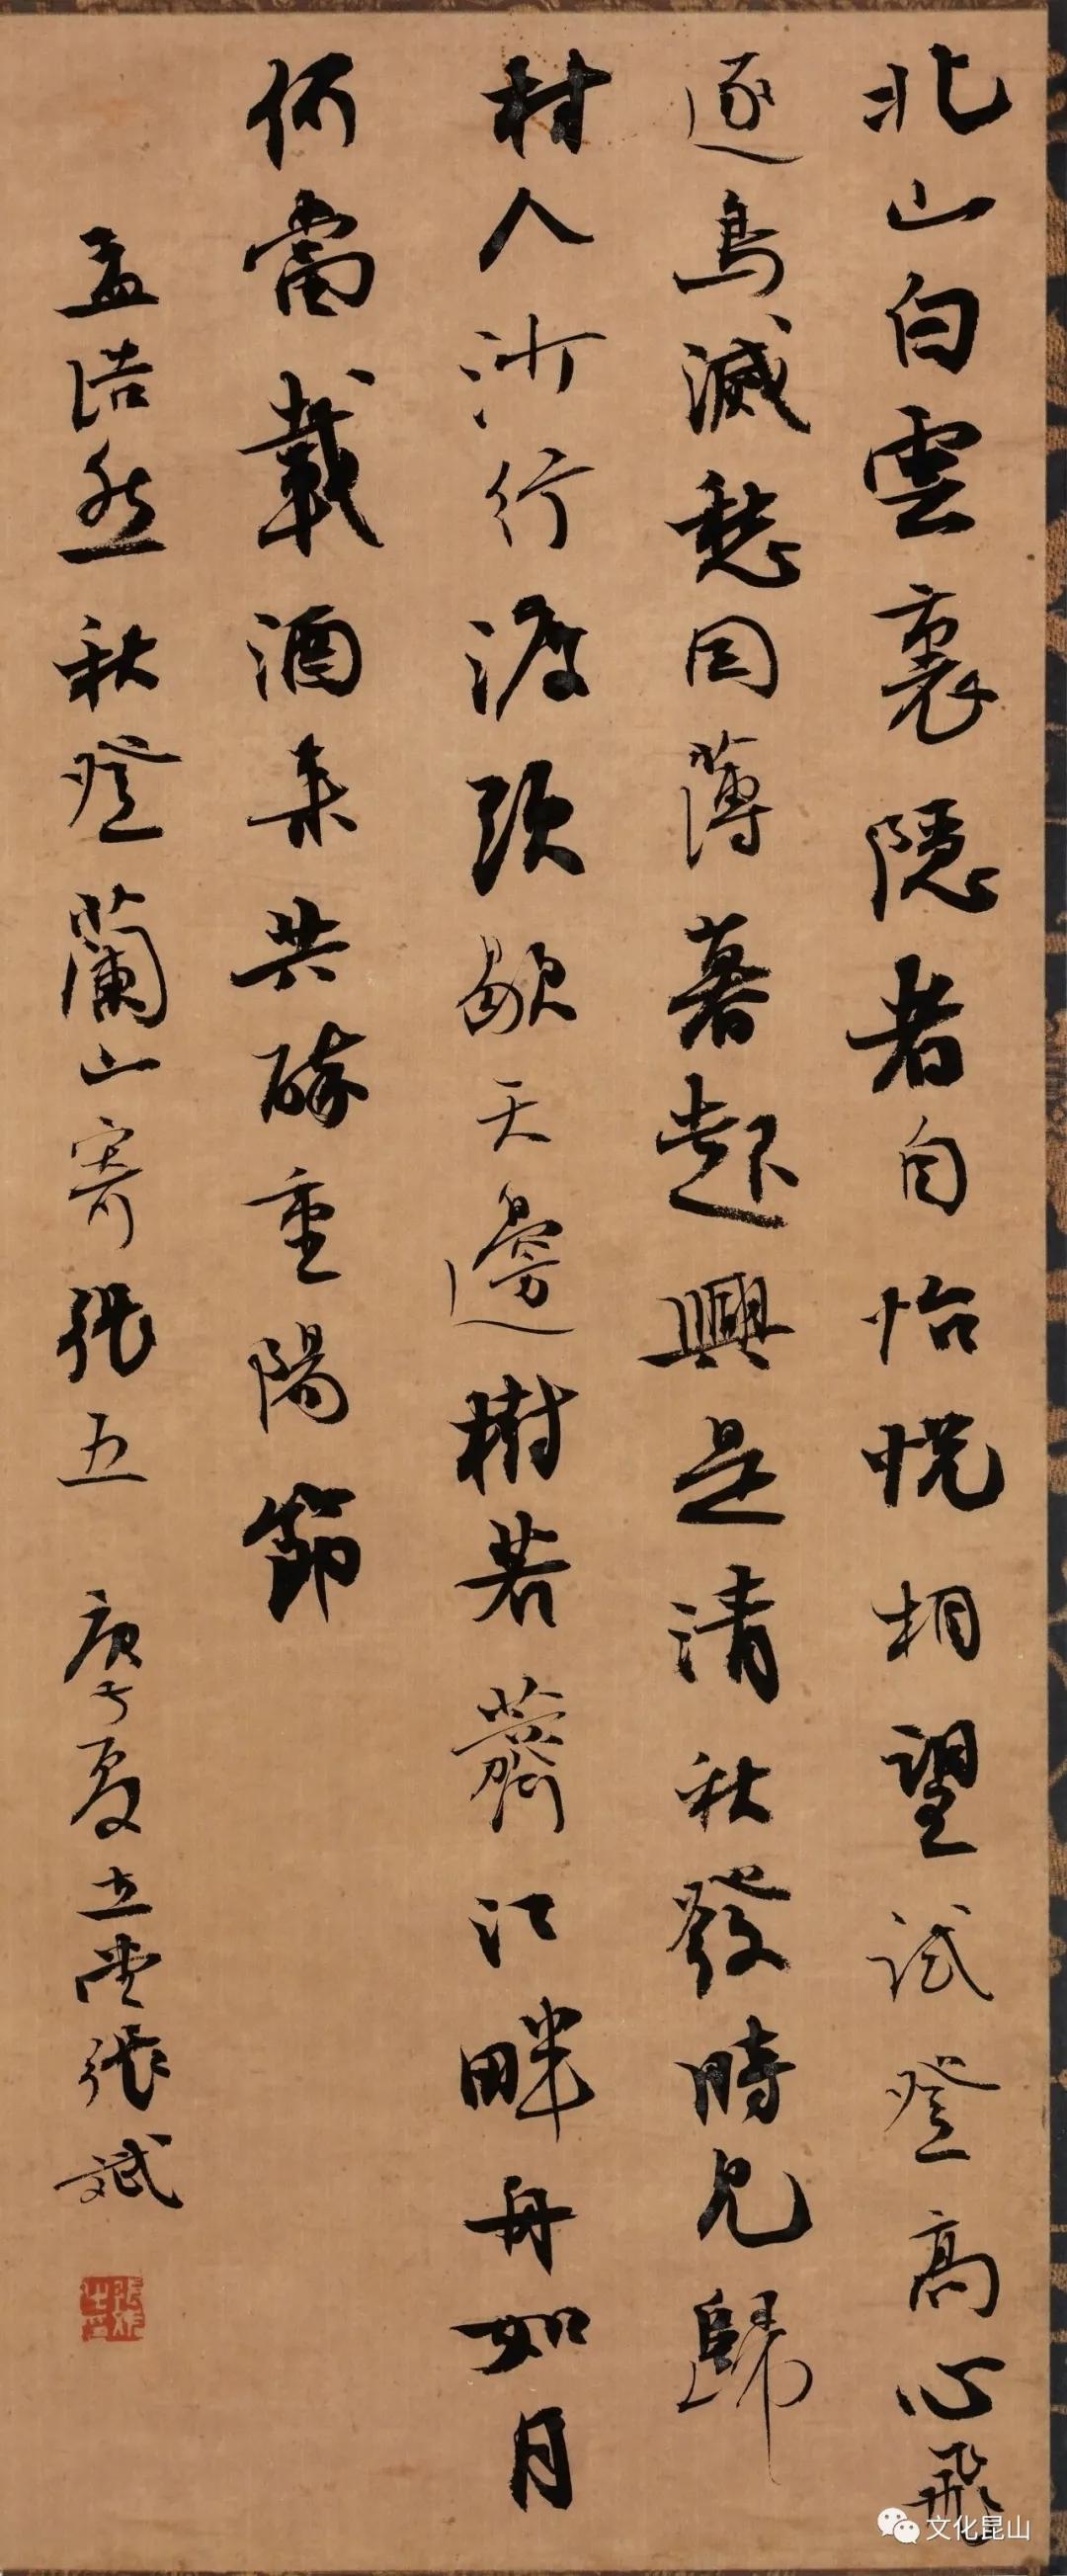 北山白雲裏隱者自怡悅相望試登高心飛
逐鳥滅愁因薄暮起興是清秋發時見歸
村人沙行渡頭歇天邊樹若薺江畔舟如月
何當載酒來共醉重陽節
孟浩然秋登蘭山寄張五 庚子夏 堂張斌
文化昆山